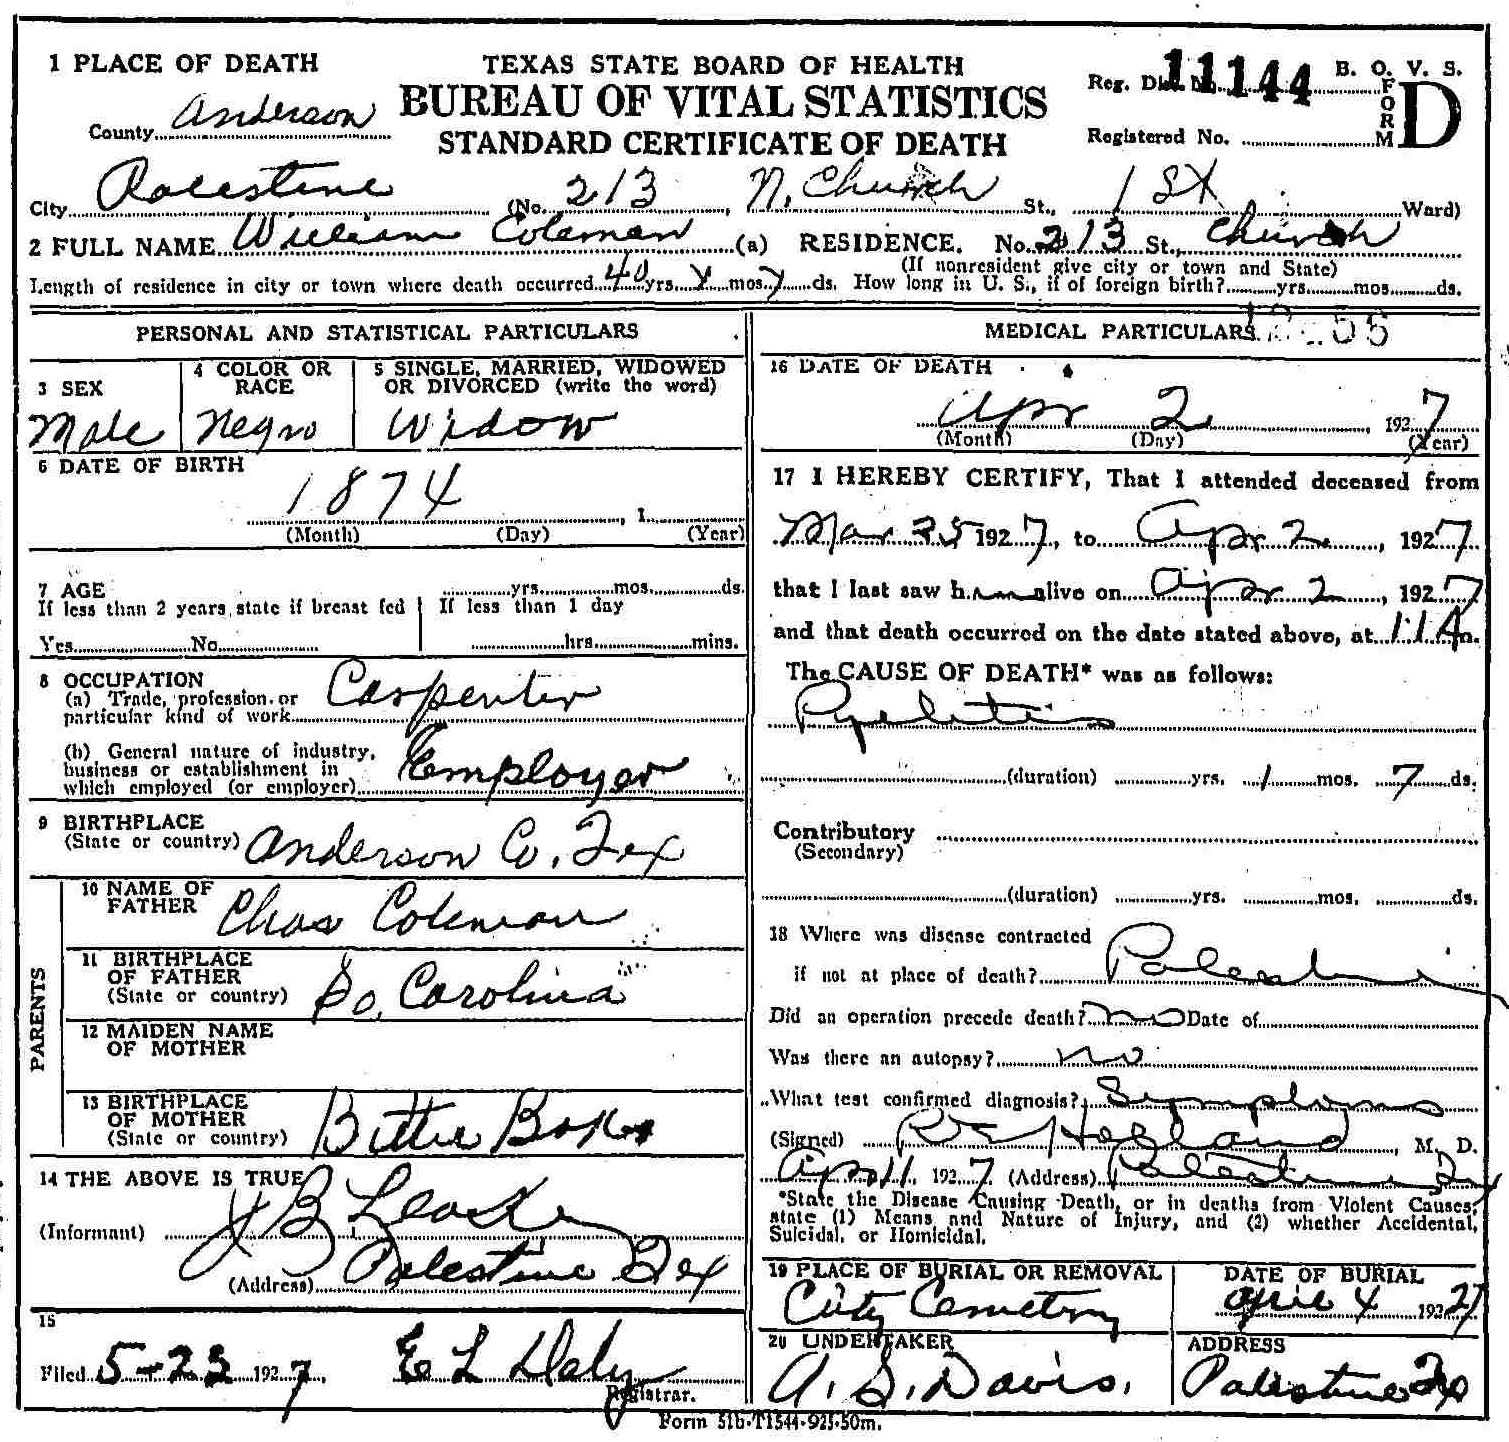 1 PLACE OF DEATH
TEXAS STATE BOARD OF HEALTH
BUREAU OF VITAL STATISTICS
STANDARD CERTIFICATE OF DEATH
Reg. Dis. No. 11144
B. O. V. S.
FORM D
Registered No.
County Anderson
City Palestine (No. 213, N. Church St., 1st Ward)
2 FULL NAME William Coleman (a) RESIDENCE. No. 213 St., Church
(If nonresident give city or town and State)
Length of residence in city or town where death occurred 40 yrs. mos. ds. How long in U. S., if of foreign birth? yrs. mos. ds.
PERSONAL AND STATISTICAL PARTICULARS
3 SEX
Male
4 COLOR OR RACE
Negro
5 SINGLE, MARRIED, WIDOWED
OR DIVORCED (write the word)
Widow
6 DATE OF BIRTH
1874, 1
(Month) (Day) (Year)
7 AGE yrs. mos. ds.
If less than 2 years state if breast fed
Yes No
If less than 1 day
hrs. mins.
8 OCCUPATION
(a) Trade, profession or
particular kind of work Carpenter
(b) General nature of industry,
business or establishment in
which employed (or employer) Employer
9 BIRTHPLACE
(State or country) Anderson Co. Tex
PARENTS
10 NAME OF
FATHER Chas Coleman
11 BIRTHPLACE
OF FATHER
(State or country) So. Carolina
12 MAIDEN NAME
OF MOTHER
13 BIRTHPLACE
OF MOTHER
(State or country) Bettie
14 THE ABOVE IS TRUE
(Informant) J B
(Address) Palestine Tex
15
Filed 5-23 1927, E L Daly
Registrar.
MEDICAL PARTICULARS
16 DATE OF DEATH
Apr 2, 1927
(Month) (Day) (Year)
17 I HEREBY CERTIFY, That I attended deceased from
Mar 25 1927, to Apr 2, 1927
that I last saw him alive on Apr 2, 1927
and that death occurred on the date stated above, at 11 A m.
The CAUSE OF DEATH* was as follows:
Pyelitis
(duration) yrs. 1 mos. 7 ds.
Contributory
(Secondary)
(duration) yrs. mos. ds.
18 Where was disease contracted
if not at place of death? Palestine
Did an operation precede death? no Date of
Was there an autopsy? no
What test confirmed diagnosis? Symptoms
(Signed) Hogland, M. D.
Apr 11, 1927 (Address) Palestine Tex
*State the Disease Causing Death, or in deaths from Violent Causes,
state (1) Means and Nature of Injury, and (2) whether Accidental,
Suicidal, or Homicidal.
19 PLACE OF BURIAL OR REMOVAL
City Cemetery
DATE OF BURIAL
April 4 1927
20 UNDERTAKER
A. S. Davis.
ADDRESS
Palestine Tex
Form 51b-T1544-925-50m.